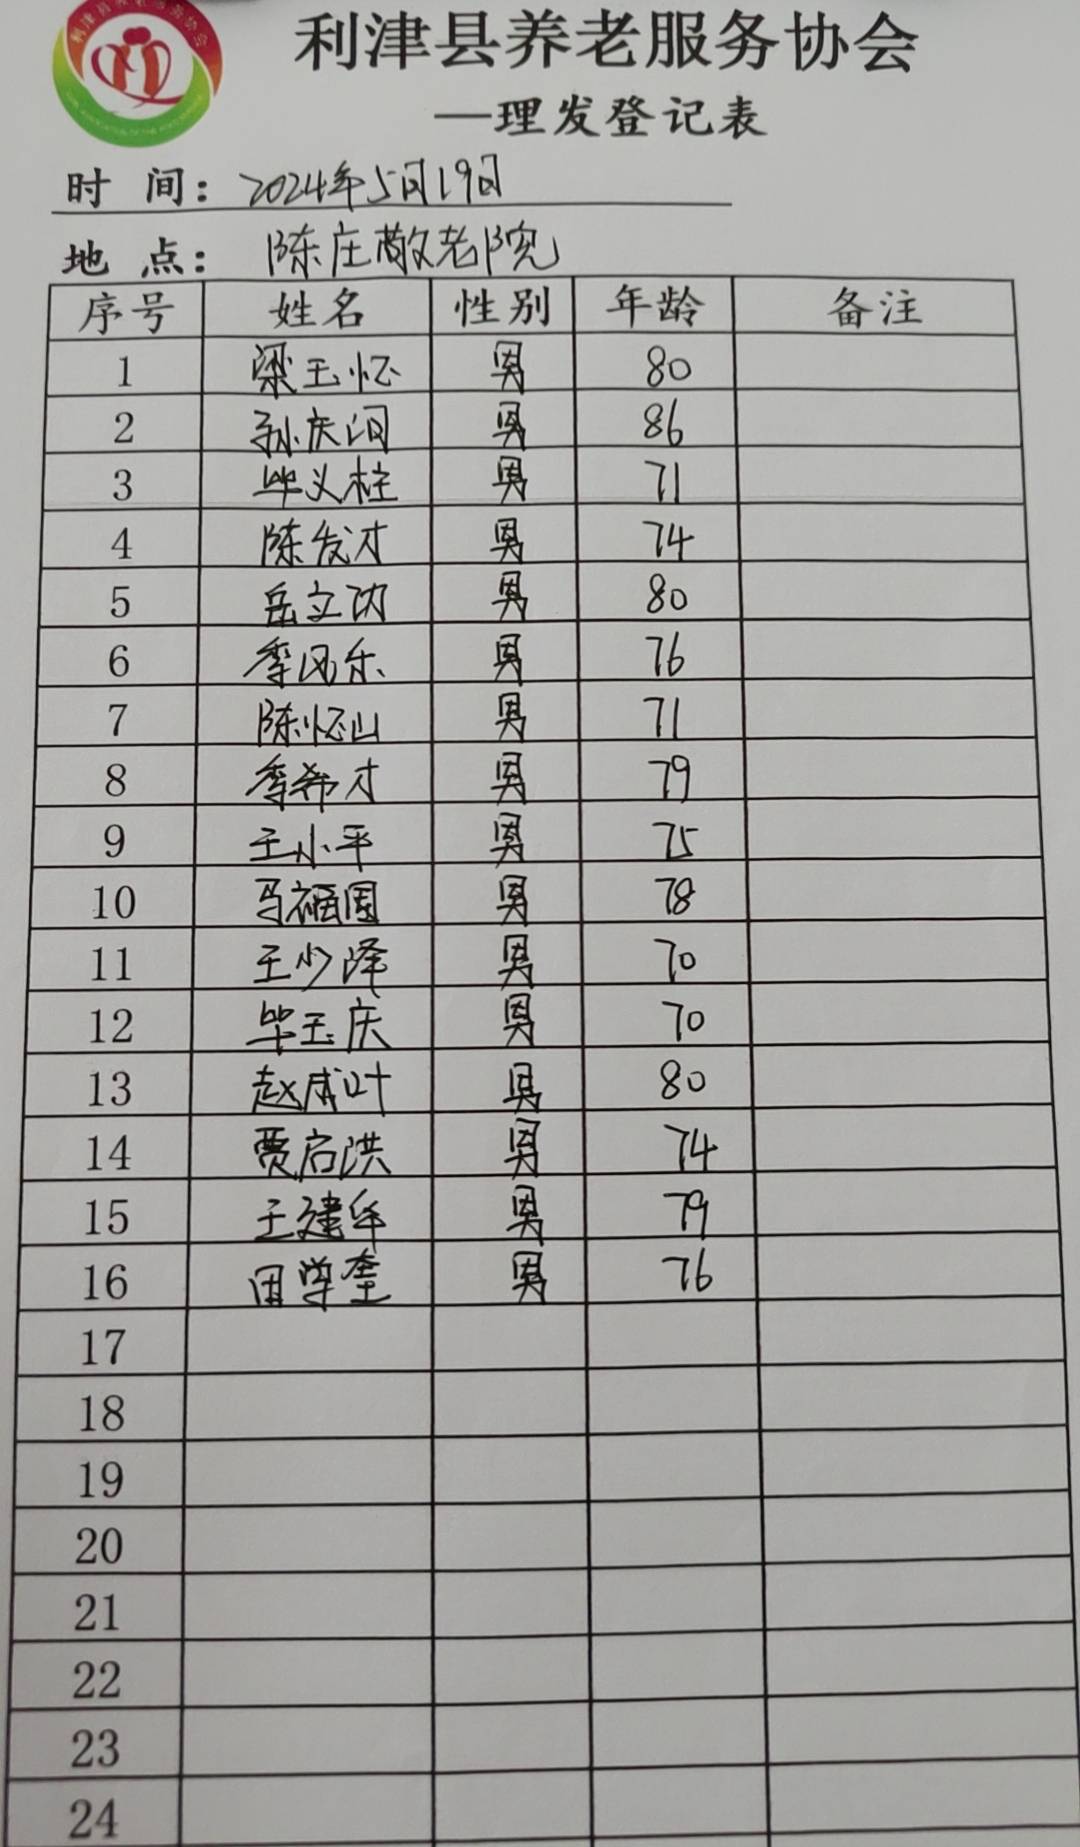 利津县养老服务协会
—理发登记表
时 间：2024年5月19日
地 点：陈庄敬老院
序号 姓名 性别 年龄 备注
1 梁玉怀 男 80
2 孙庆润 男 86
3 毕义柱 男 71
4 陈发才 男 74
5 岳立功 男 80
6 李风乐 男 76
7 陈怀山 男 71
8 李希才 男 79
9 王小平 男 75
10 马福国 男 78
11 王少泽 男 70
12 毕玉庆 男 70
13 赵成叶 男 80
14 贾启洪 男 74
15 王建华 男 79
16 田学奎 男 76
17
18
19
20
21
22
23
24